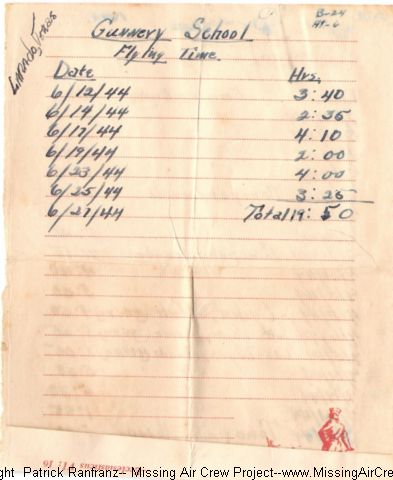 B-24
AT-6
Laredo, Texas
Gunnery School
Flying Time
Date Hrs,
6/12/44 3:40
6/14/44 2:35
6/17/44 4:10
6/19/44 2:00
6/23/44 4:00
6/25/44 3:25
6/27/44 Total 19:50
ght Patrick Ranfranz-- Missing Air Crew Project--www.MissingAirCre